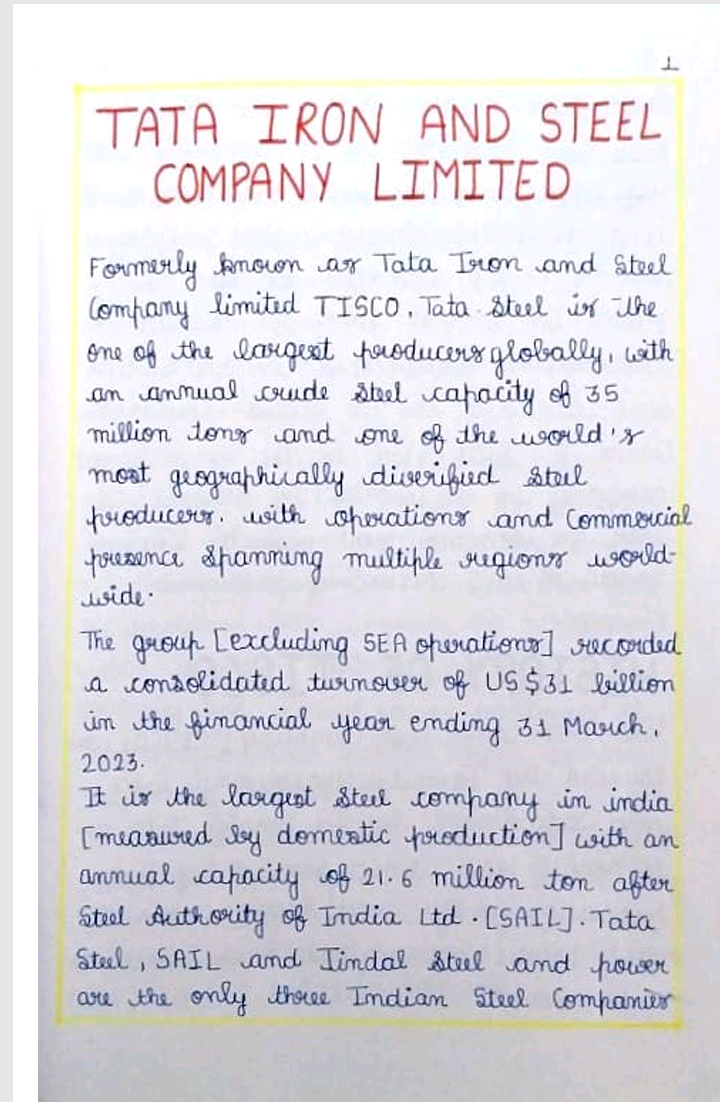 1
TATA IRON AND STEEL
COMPANY LIMITED
Formerly known as Tata Iron and Steel
Company limited TISCO, Tata Steel is the
one of the largest producers globally, with
an annual crude steel capacity of 35
million tons and one of the world's
most geographically diverified steel
producers. with operations and Commercial
presence spanning multiple regions world-
wide.
The group [excluding SEA operations] recorded
a consolidated turnover of US $31 billion
in the financial year ending 31 March,
2023.
It is the largest steel company in india
[measured by domestic production] with an
annual capacity of 21.6 million ton after
Steel Authority of India Ltd. [SAIL]. Tata
Steel, SAIL and Jindal Steel and power
are the only three Indian Steel Companies